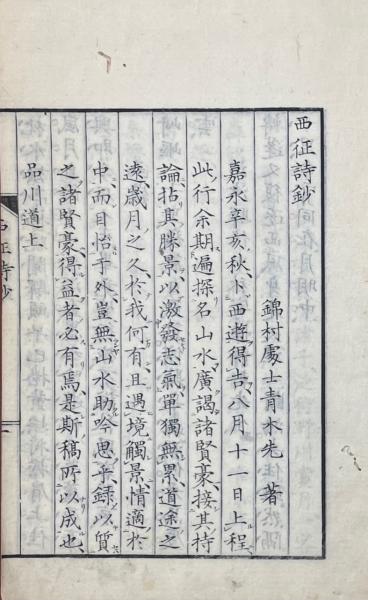 西征詩鈔
錦村處士青木先著
嘉永辛亥秋卜西遊得吉八月十一日上程
此行余期遍探名山水廣謁諸賢豪接其持
論拈其勝景以激發志氣單獨無累道途之
遠歲月之久於我何有且遇境觸景情適於
中而目怡于外豈無山水助吟思乎録以質
之諸賢豪得益者必有焉是斯稿所以成也
品川道上
西征詩鈔